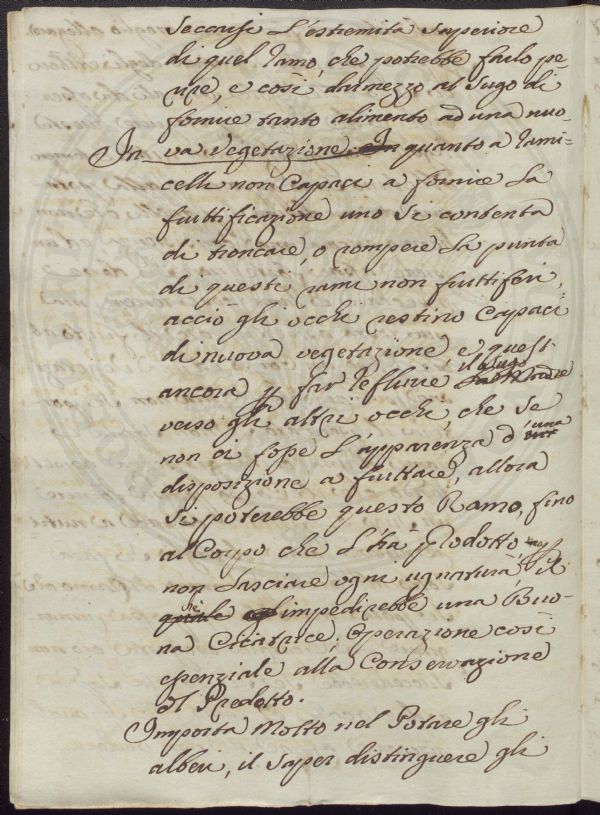 seccarsi L'estremità superiore
di quel Ramo, che potrebbe farlo pe-
rire, e così dar mezzo al sugo di
fornire tanto alimento ad una nuo-
va vegetazione. In quanto a Rami-
celli non Capaci a fornire La
fruttificazione uno si contenta
di troncare, o rompere La punta
di questi rami non fruttiferi,
acciò gli occhi restino Capaci
di nuova vegetazione, e questi
ancora p far Refluire il sugo
verso gli altri occhi, che se
non ci fosse L'apparenza d'una
disposizione a fruttare, allora
si poterebbe questo Ramo, fino
al Corpo che L'ha Prodotto
non Lasciare ogni ugnatura,
impedirebbe una Buo-
na Cicatrice, Operazione così
essenziale alla Conservazione
del Prodotto.
Importa Molto nel Potare gli
alberi, il saper distinguere gli